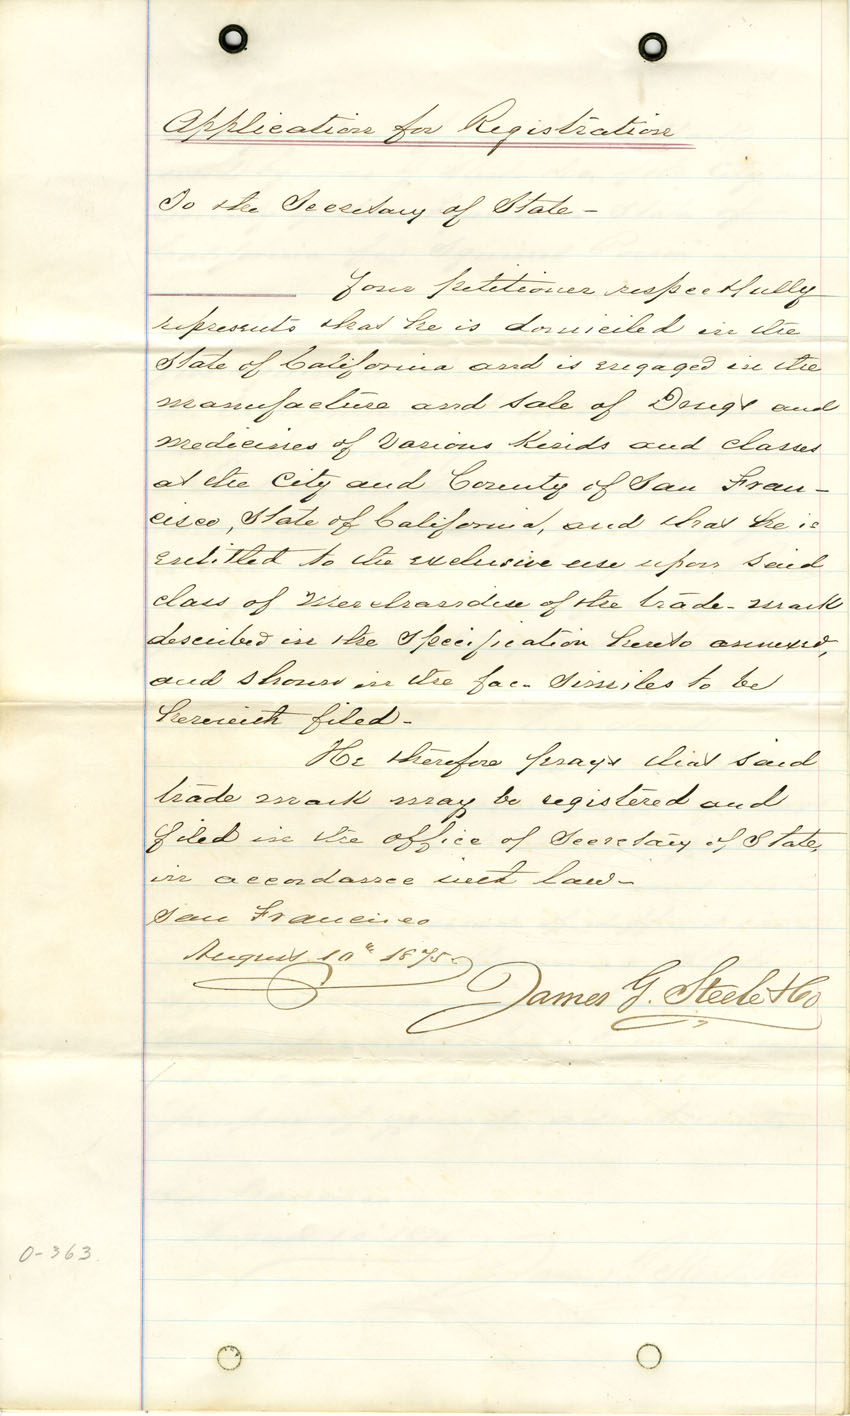 Application for Registration
To the Secretary of State -
Your petitioner respectfully
represents that he is domiciled in the
State of California and is engaged in the
manufacture and sale of Drugs and
medicines of various kinds and classes
at the City and County of San Fran-
cisco, State of California, and that he is
entitled to the exclusive use upon said
class of Merchandise of the trade-mark
described in the specification hereto annexed,
and shown in the fac-similes to be
herewith filed -
He therefore prays that said
trade mark may be registered and
filed in the office of Secretary of State,
in accordance with law -
San Francisco
August 10th 1875 -
James G. Steele & Co
0-363